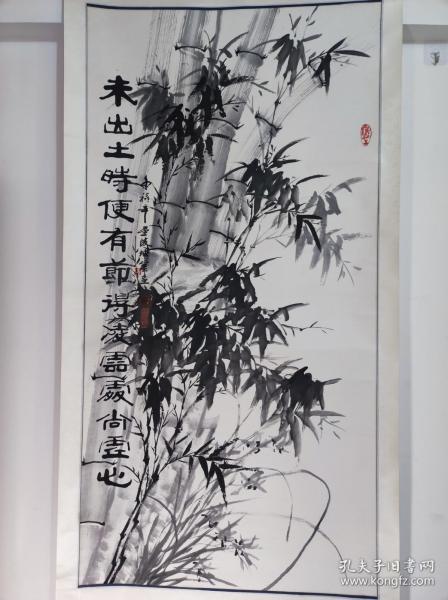 未出土時便有節得凌雲處尚虛心
孔夫子旧书网
www.kongfz.com